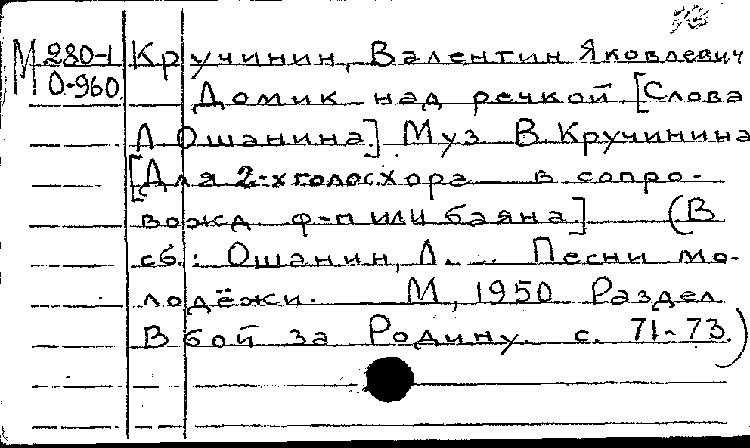 М 280-1
0-960
Кручинин, Валентин Яковлевич
Домик над речкой. [Слова
Л Ошанина.] Муз В. Кручинина
[Для 2-х голос хора в сопро-
вожд ф-п или баяна] (В
сб.: Ошанин, Л. .. Песни мо-
лодёжи. М, 1950 Раздел
В бой за Родину. с. 71-73.)